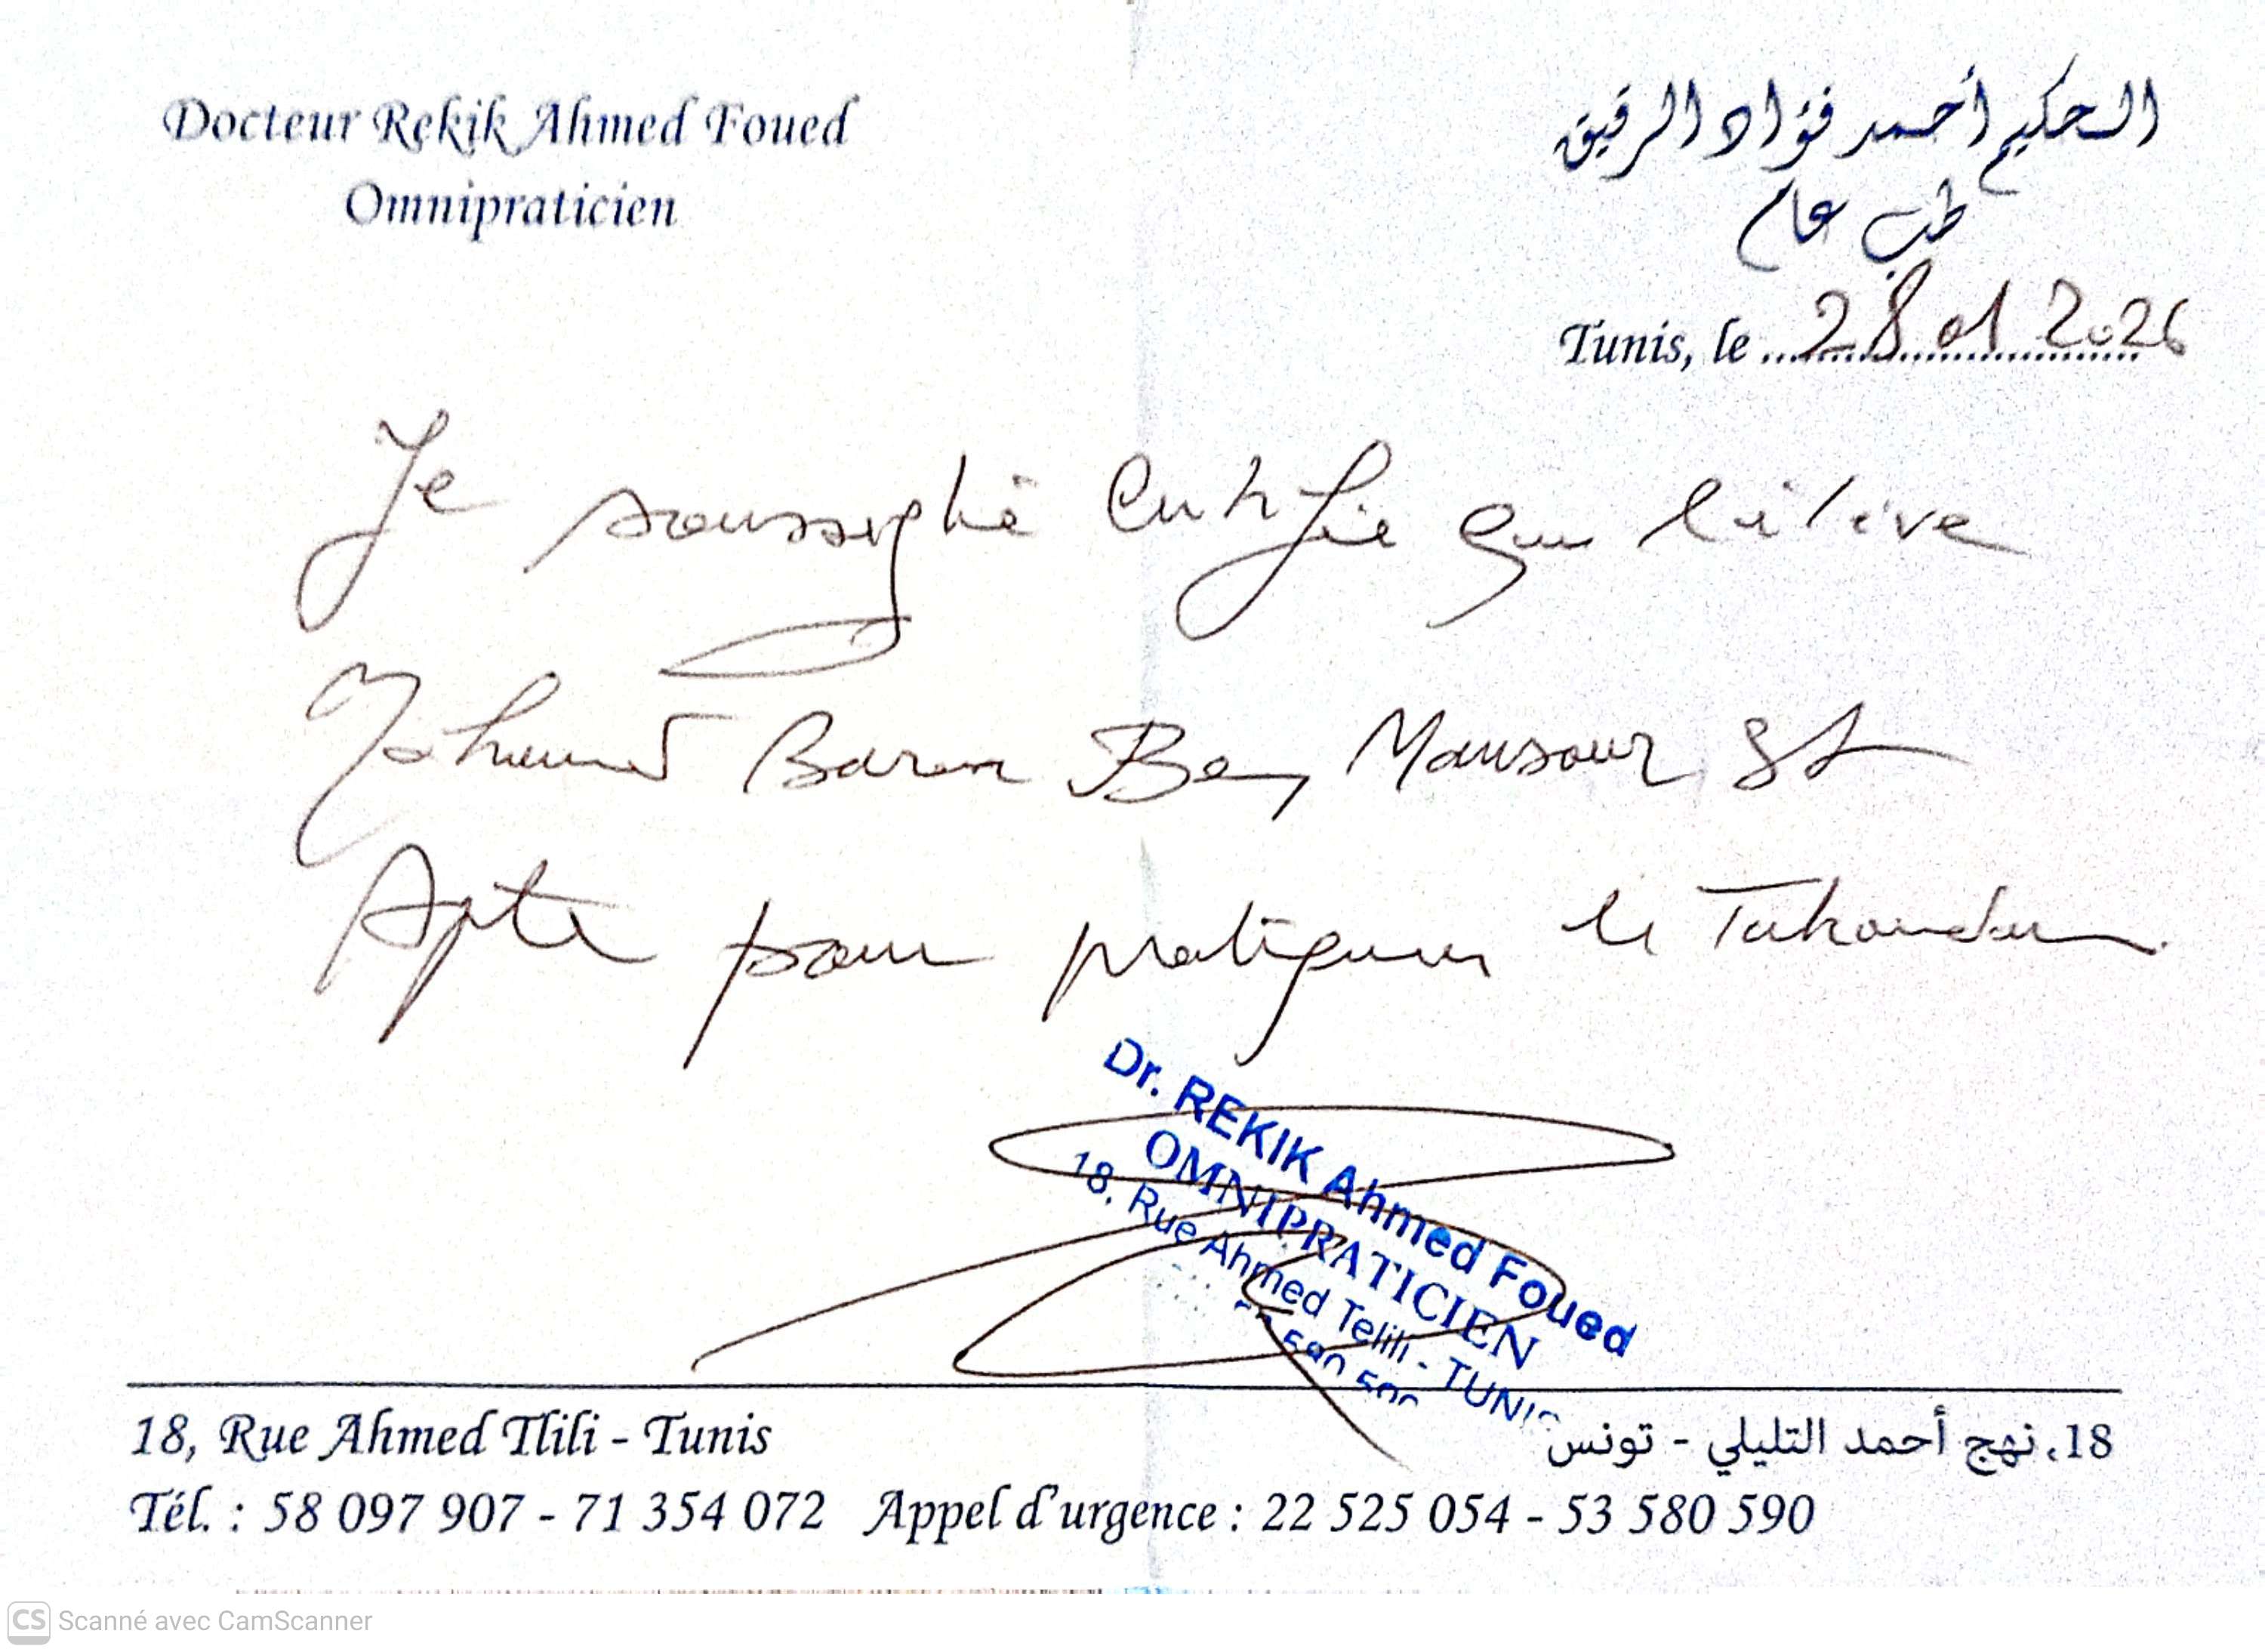 Docteur Rekik Ahmed Foued
Omnipraticien
الحكيم أحمد فؤاد الرقيق
طب عام
Tunis, le 28 01 2026
Je soussigné certifie que l'élève
Mohamed Ben Mansour est
Apte pour pratiquer le
Dr. REKIK Ahmed Foued
OMNIPRATICIEN
18, Rue Ahmed Telili - TUNIS
580 590
18, Rue Ahmed Tlili - Tunis
18, نهج أحمد التليلي - تونس
Tél. : 58 097 907 - 71 354 072 Appel d'urgence : 22 525 054 - 53 580 590
CS Scanné avec CamScanner